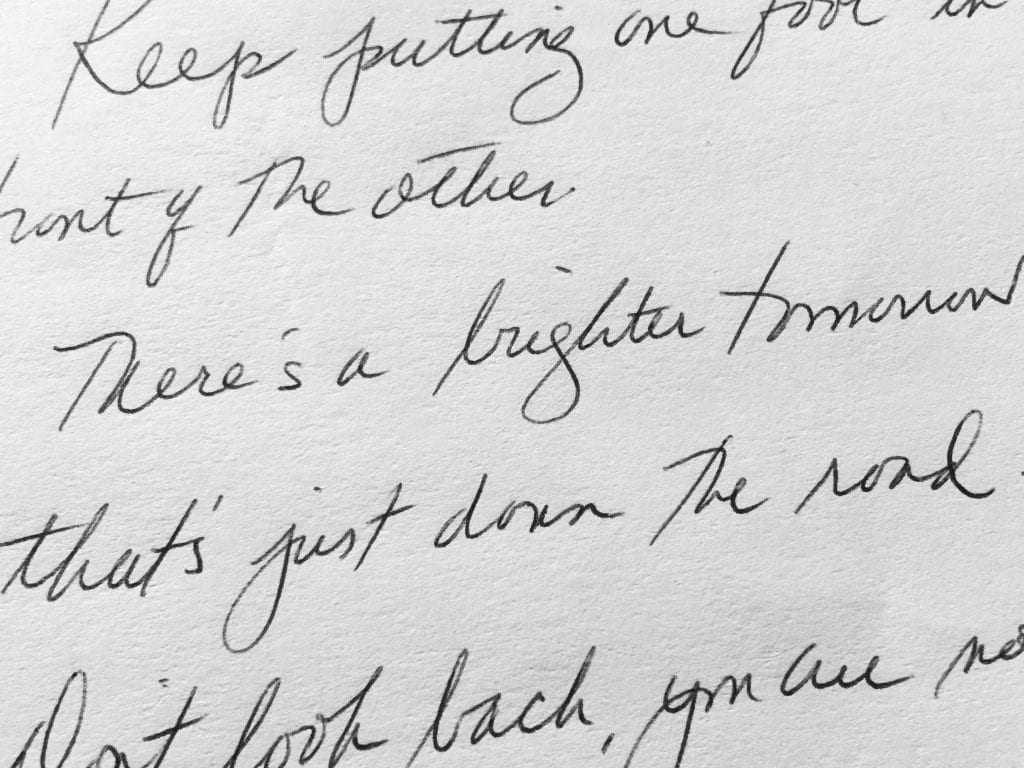 Keep putting one foot in
front of the other
There's a brighter tomorrow
that's just down the road
Don't look back, you are